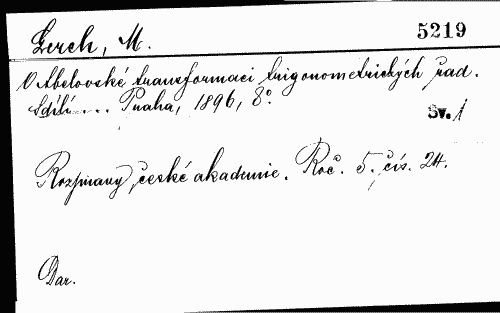 Lerch, M. 5219
O Abelovské transformaci trigonometrických řad.
Sdílí ... Praha, 1896, 8°.
Sv. 1
Rozpravy české akademie. Roč. 5. čís. 24.
Dar.